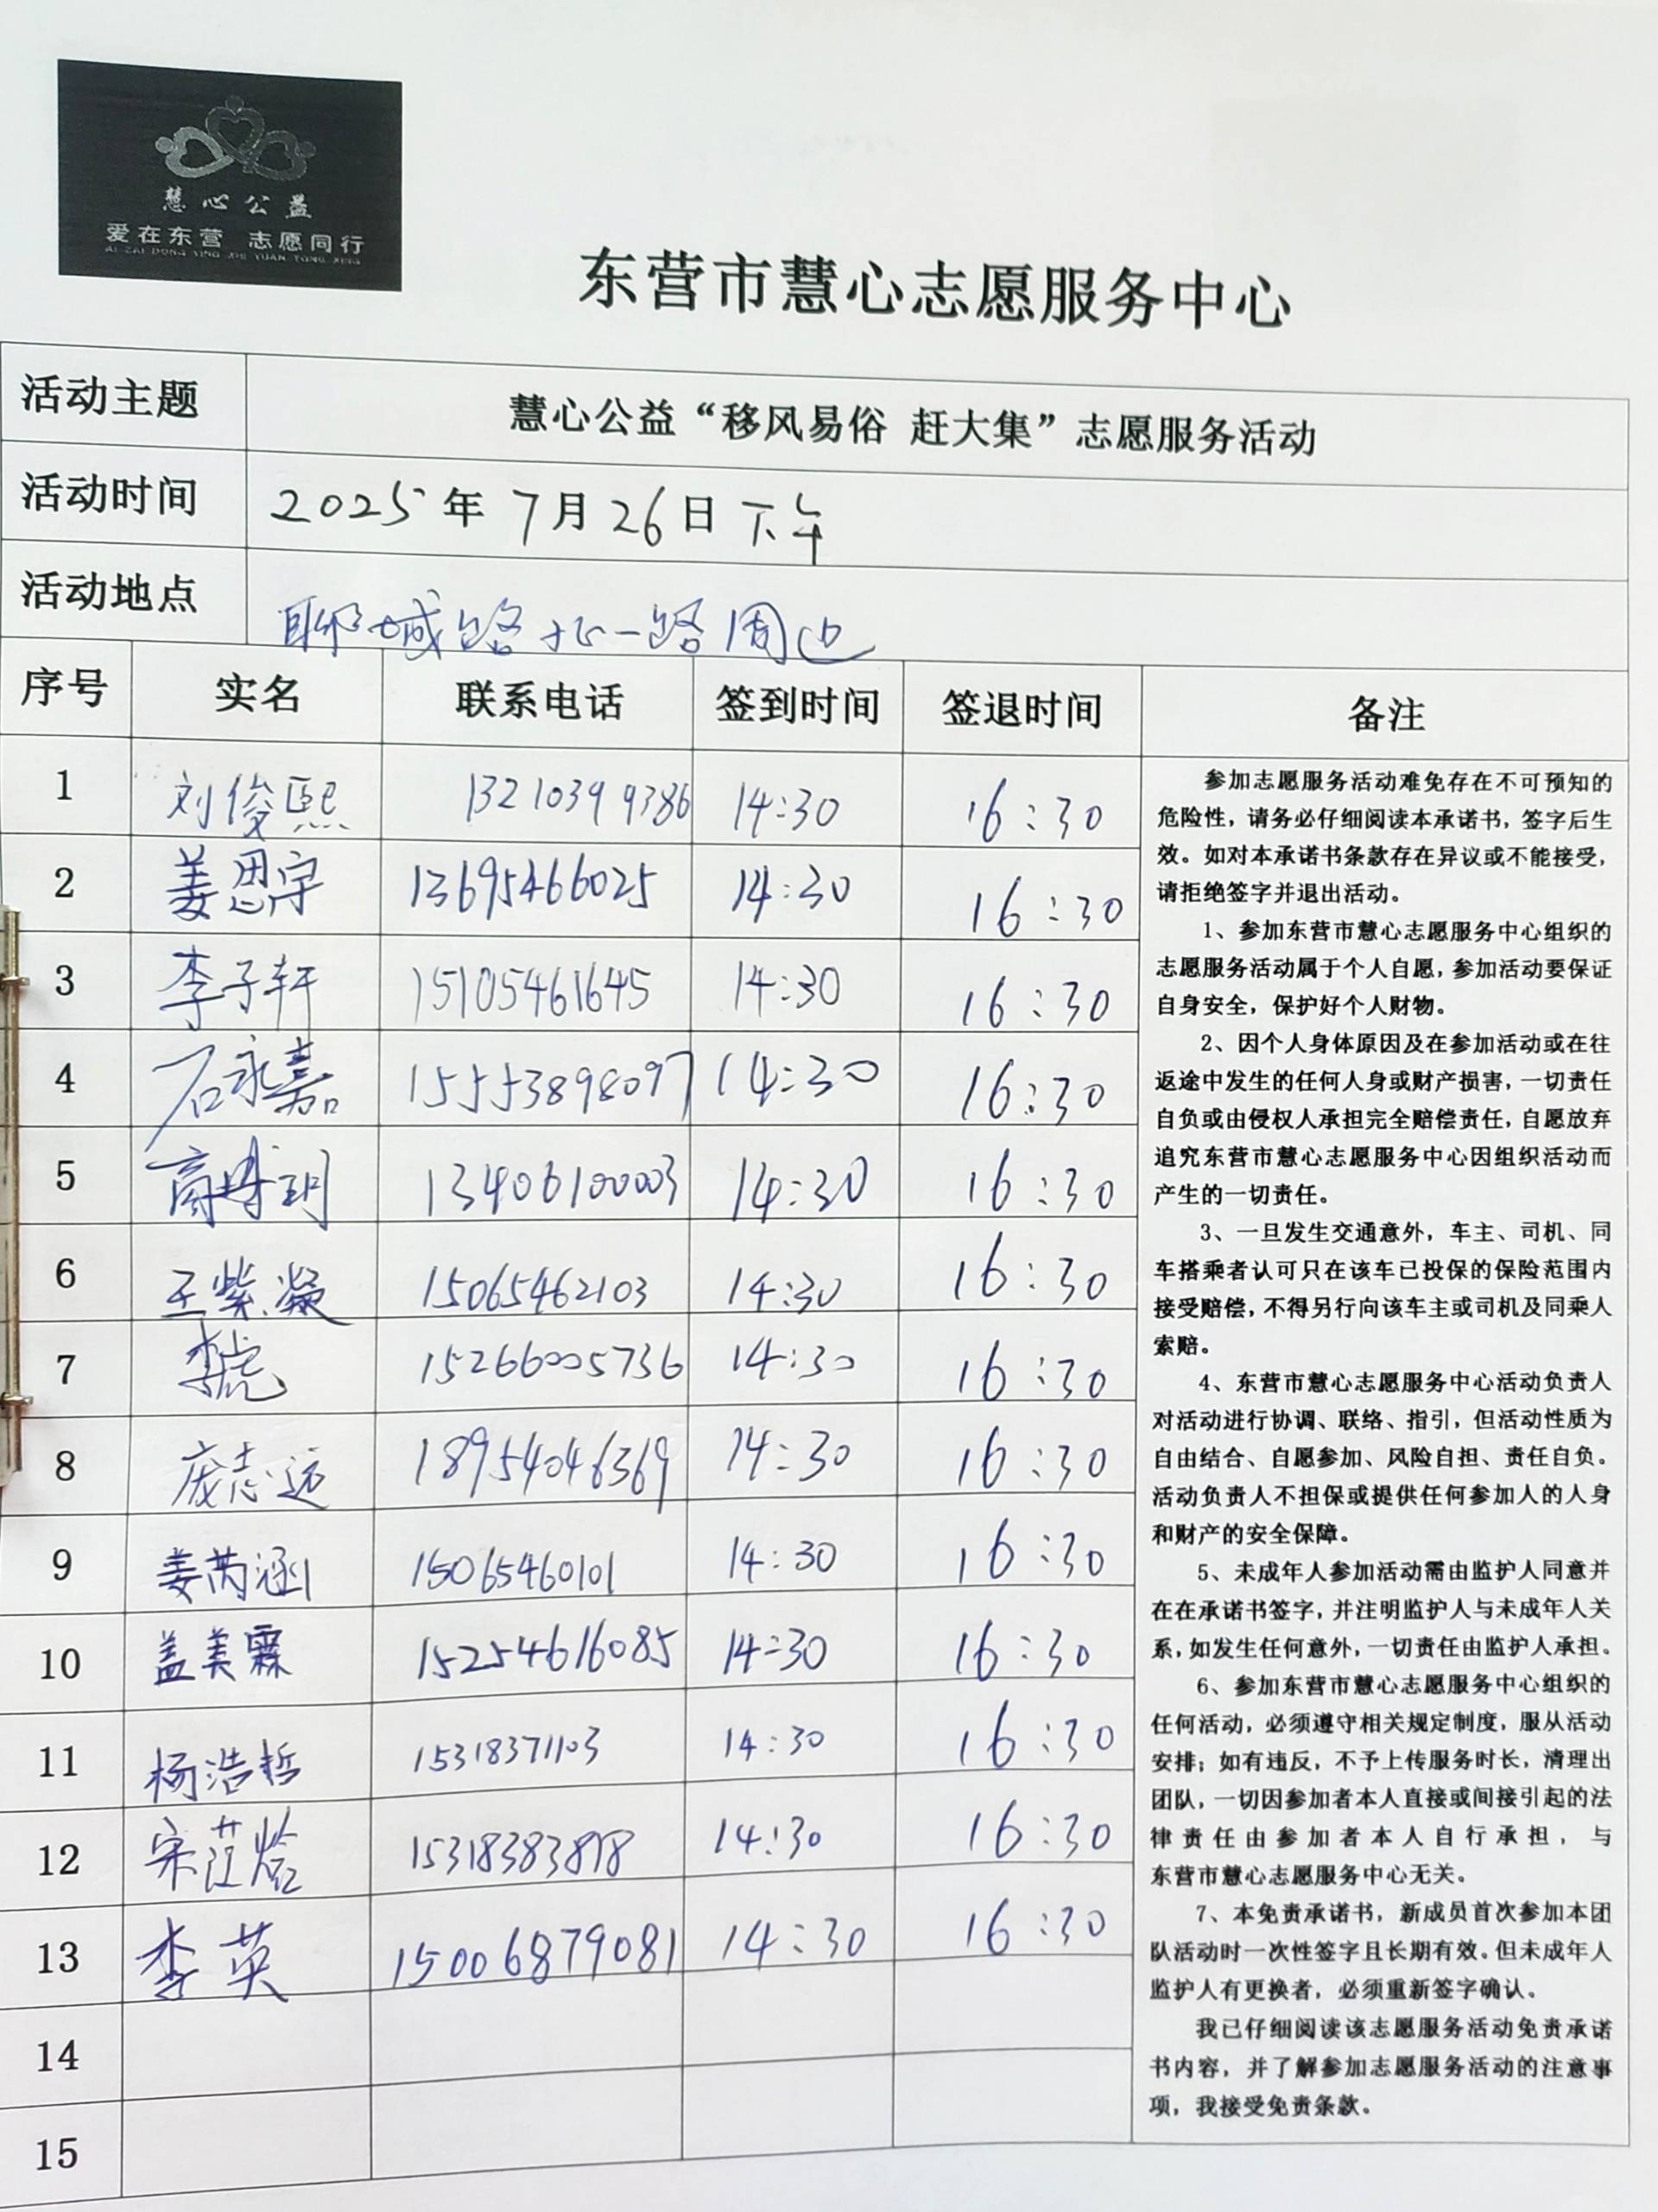 慧心公益
爱在东营 志愿同行
AI ZAI DONG YING ZHI YUAN TONG XING
东营市慧心志愿服务中心
活动主题 慧心公益“移风易俗 赶大集”志愿服务活动
活动时间 2025年7月26日下午
活动地点 聊城路北一路周边
序号 实名 联系电话 签到时间 签退时间 备注
1 刘俊熙 13210399386 14:30 16:30
2 姜思宇 13695466025 14:30 16:30
3 李子轩 15105461645 14:30 16:30
4 石永嘉 15553898097 14:30 16:30
5 13406100003 14:30 16:30
6 王紫凝 15065462103 14:30 16:30
7 李虎 15266005736 14:30 16:30
8 庞志远 18954046369 14:30 16:30
9 姜芮涵 15065460101 14:30 16:30
10 盖美霖 15254616085 14:30 16:30
11 杨浩哲 15318371103 14:30 16:30
12 15318383898 14:30 16:30
13 李英 15006879081 14:30 16:30
14
15
参加志愿服务活动难免存在不可预知的
危险性，请务必仔细阅读本承诺书，签字后生
效。如对本承诺书条款存在异议或不能接受，
请拒绝签字并退出活动。
1、参加东营市慧心志愿服务中心组织的
志愿服务活动属于个人自愿，参加活动要保证
自身安全，保护好个人财物。
2、因个人身体原因及在参加活动或在往
返途中发生的任何人身或财产损害，一切责任
自负或由侵权人承担完全赔偿责任，自愿放弃
追究东营市慧心志愿服务中心因组织活动而
产生的一切责任。
3、一旦发生交通意外，车主、司机、同
车搭乘者认可只在该车已投保的保险范围内
接受赔偿，不得另行向该车主或司机及同乘人
索赔。
4、东营市慧心志愿服务中心活动负责人
对活动进行协调、联络、指引，但活动性质为
自由结合、自愿参加、风险自担、责任自负。
活动负责人不担保或提供任何参加人的人身
和财产的安全保障。
5、未成年人参加活动需由监护人同意并
在在承诺书签字，并注明监护人与未成年人关
系，如发生任何意外，一切责任由监护人承担。
6、参加东营市慧心志愿服务中心组织的
任何活动，必须遵守相关规定制度，服从活动
安排；如有违反，不予上传服务时长，清理出
团队，一切因参加者本人直接或间接引起的法
律责任由参加者本人自行承担，与
东营市慧心志愿服务中心无关。
7、本免责承诺书，新成员首次参加本团
队活动时一次性签字且长期有效。但未成年人
监护人有更换者，必须重新签字确认。
我已仔细阅读该志愿服务活动免责承诺
书内容，并了解参加志愿服务活动的注意事
项，我接受免责条款。